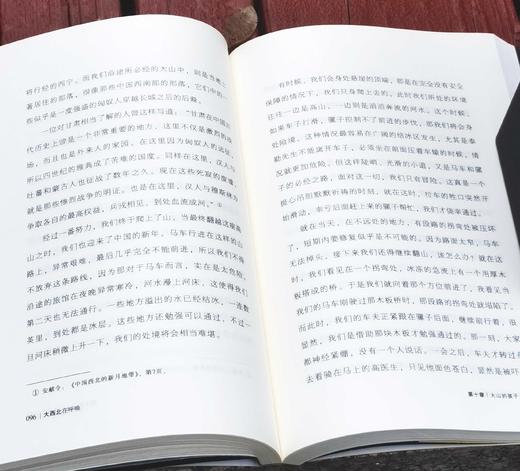 将行经的西宁。在我们沿途所必经的大山中，则是当地土
著居住的部落，很像那些中国西南部的部落，它们中的一
些似乎是一度强盛的匈奴人穿越长城之后的后裔。
一位对甘肃相当了解的人曾这样写道：“甘肃在中国历
代历史上曾是一个非常重要的地方，这里不仅是激烈的战
场，而且也是外来人的家园。在这里因为匈奴人的远征，
所以四世纪的雅典成了苦难的国度。同样在这里，汉人与
吐蕃和蒙古人也征战了数年之久。现在这些死寂的废墟
就是那些惨烈战争的明证。也是在这里，汉人与穆斯林为
争取各自的最高权益，兵戎相见，到处血流成河。”①
经过一番努力，我们终于爬上了山，当最终翻越这座高
山之时，我们也迎来了中国的新年，马车行进在这样的山
路上，异常艰难，最后几乎完全不能前进，所以我们不得
不放弃这条路线，因为那对于马车而言，实在是太危险。
沿途的旅馆在夜晚异常寒冷，河水漫上河床，这使得我们
第二天也无法通行。一些地方溢出的水已经结冰，一连数
英里，到处都是冰层。这些地方还勉强可以通过，不过一
旦河床稍微上升一下，我们的处境将会相当难堪。
① 安献令：《中国西北的新月地带》，第7页。
096 | 大西北在呼唤
有时候，我们会身处悬崖的顶端，那是在完全没有安全
保障的情况下，我们只身爬上去的。此时我们所处的环境
往往一边是高山，一边则是汹涌奔腾的河水。这个时候，
如果车子打滑，骡子控制不了前进的步伐，那我们将会身
处险境。这种情况最容易在广阔的结冰区发生，尤其是泰
勒先生不能离开车子，必须坐在前面压着车辕的时候，情
况就更加危险。但这样陡峭、光滑的小道，又是马车和骡
子的必经之路，面对这一切，我们只有冒险。这真是一个
提心吊胆默默祈祷的时刻，就在这时，轿车的拖口突然开
始滑动，幸亏后面赶上来的骡子帮忙，我们才侥幸通过。
就在当天，在不远处的地方，有段路的拐弯处被压坏
了，短期内要修复似乎是不可能的。因为路面太窄，马车
无法掉头，接下来我们还得继续翻山，该怎么办？就在这
时，我们看见在一个拐弯处，冰冻的急流上有一个用厚木
板搭成的桥。于是我们就向着那个方位前进了，我看见当
我们的马车刚驶过那木板桥时，那段路的拐弯处就塌陷了。
而此时，我们的车夫正紧跟在骡子后面，继续前行着，很
显然，我们是借助那块木板才勉强通过的。那一刻，大家
都神经紧绷，没有一个人说话。一会之后，车夫才转过
去看骑在马上的高医生，只见他面色苍白，显然是被吓
第十章 | 大山的孩子